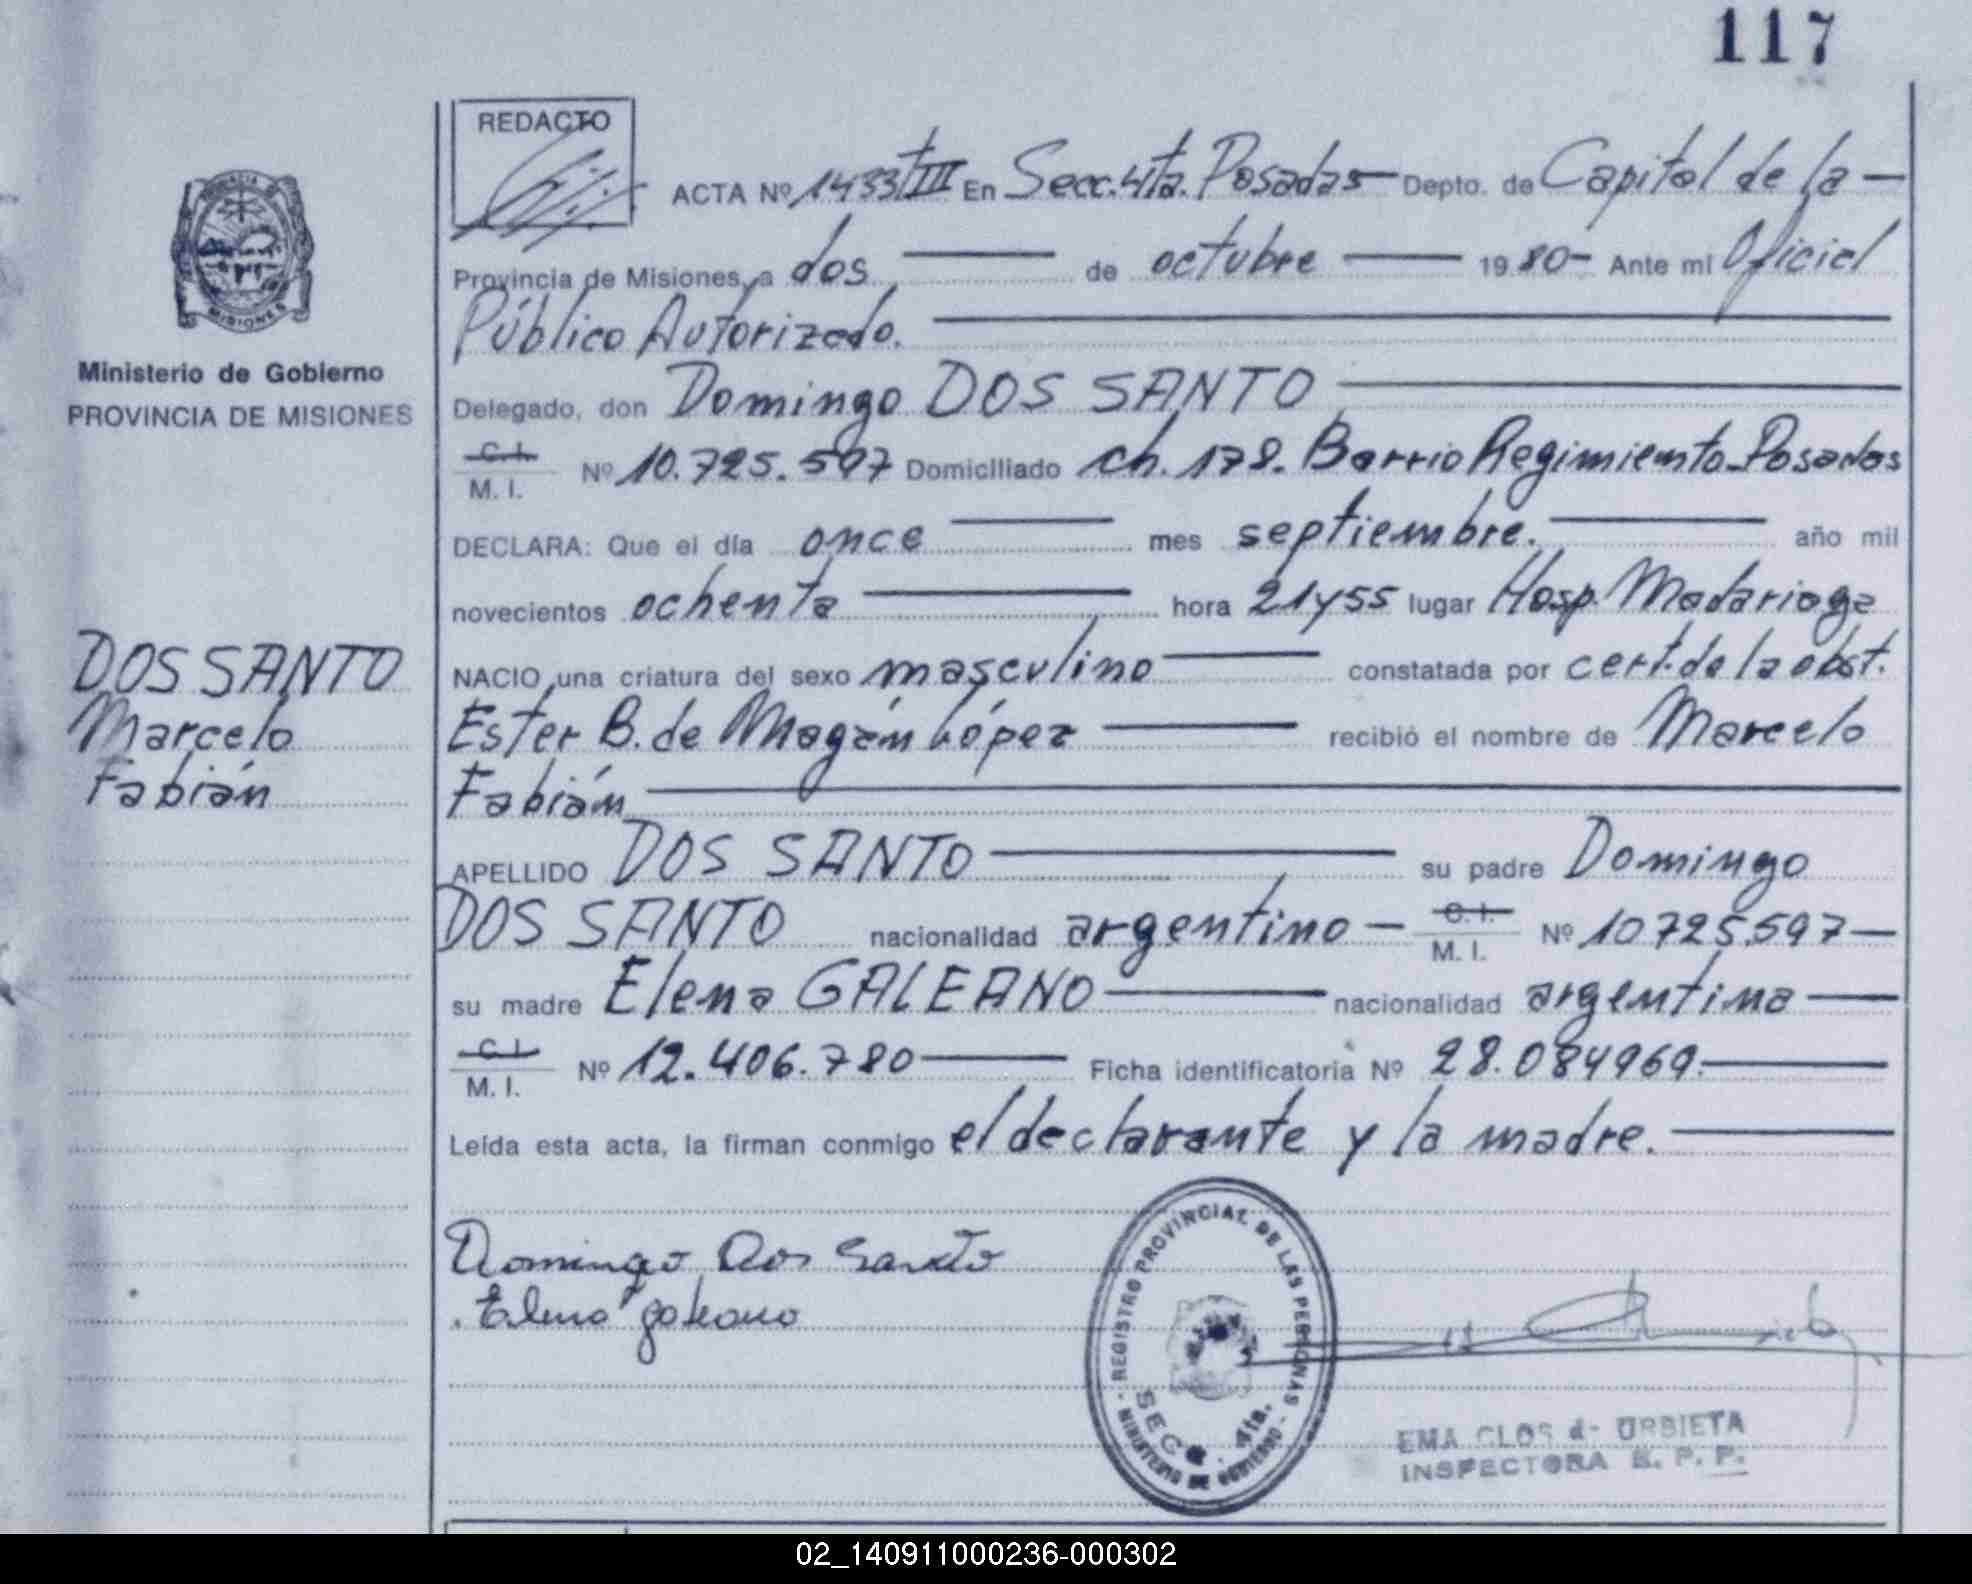 117
REDACTO
ACTA Nº 1433 tIII En Secc. 4ta. Posadas Depto. de Capital de la
Provincia de Misiones, a dos de octubre 1980 Ante mi Oficial
Público Autorizado.
Delegado, don Domingo DOS SANTO
C. I.
M. I.
Nº 10.725.597 Domiciliado ch. 178. Barrio Regimiento - Posadas
DECLARA: Que el día once mes septiembre. año mil
novecientos ochenta hora 21y55 lugar Hosp. Madariaga
NACIO una criatura del sexo masculino constatada por cert. de la obst.
Ester B. de Magán López recibió el nombre de Marcelo
Fabián
APELLIDO DOS SANTO su padre Domingo
DOS SANTO nacionalidad argentino C. I. M. I. Nº 10725.597
su madre Elena GALEANO nacionalidad argentina
C. I.
M. I.
Nº 12.406.780 Ficha identificatoria Nº 28.084969.
Leída esta acta, la firman conmigo el declarante y la madre.
Domingo Dos Santo
Elena galeano
MISIONES
Ministerio de Gobierno
PROVINCIA DE MISIONES
DOS SANTO
Marcelo
Fabián
REGISTRO PROVINCIAL DE LAS PERSONAS
MINISTERIO DE GOBIERNO
SECC. 4ta.
EMA CLOS de URBIETA
INSPECTORA R. P. P.
02_140911000236-000302